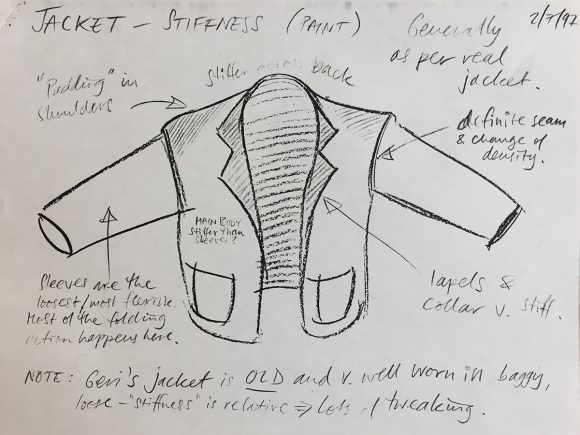 JACKET – STIFFNESS (PAINT)
2/7/97
Generally
as per real
jacket.
"Padding" in
shoulders
stiffer across back
definite seam
& change of
density.
MAIN BODY
stiffer than
sleeves?
Sleeves are the
loosest/most flexible.
Most of the folding
action happens here.
lapels &
collar v. stiff.
NOTE: Geri's jacket is OLD and v. well worn in, baggy,
loose – "stiffness" is relative ⇒ Lots of tweaking.